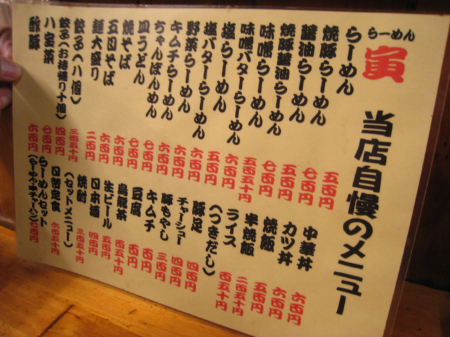 らーめん
寅
当店自慢のメニュー
らーめん 五百円
焼豚らーめん 七百円
醤油らーめん 五百円
焼豚醤油らーめん 七百円
味噌らーめん
味噌バターらーめん
塩らーめん 五百円
塩バターらーめん 六百円
野菜らーめん 六百円
キムチらーめん
ちゃんぽんめん 七百円
皿うどん 七百円
焼そば 六百円
五目そば 七百円
麺大盛り 二百円
餃子(八個) 三百五十円
餃子(お持帰り十個) 四百円
八宝菜 七百円
酢豚 六百円
中華丼 六百円
カツ丼 六百円
焼飯 五百円
半焼飯
ライス
(つきだし)
豚足 四百円
チャーシュー 四百円
豚もやし
キムチ
豆腐
烏龍茶
生ビール
日本酒
焼酎
(セットメニュー)
日替定食 六百円
らーめんセット